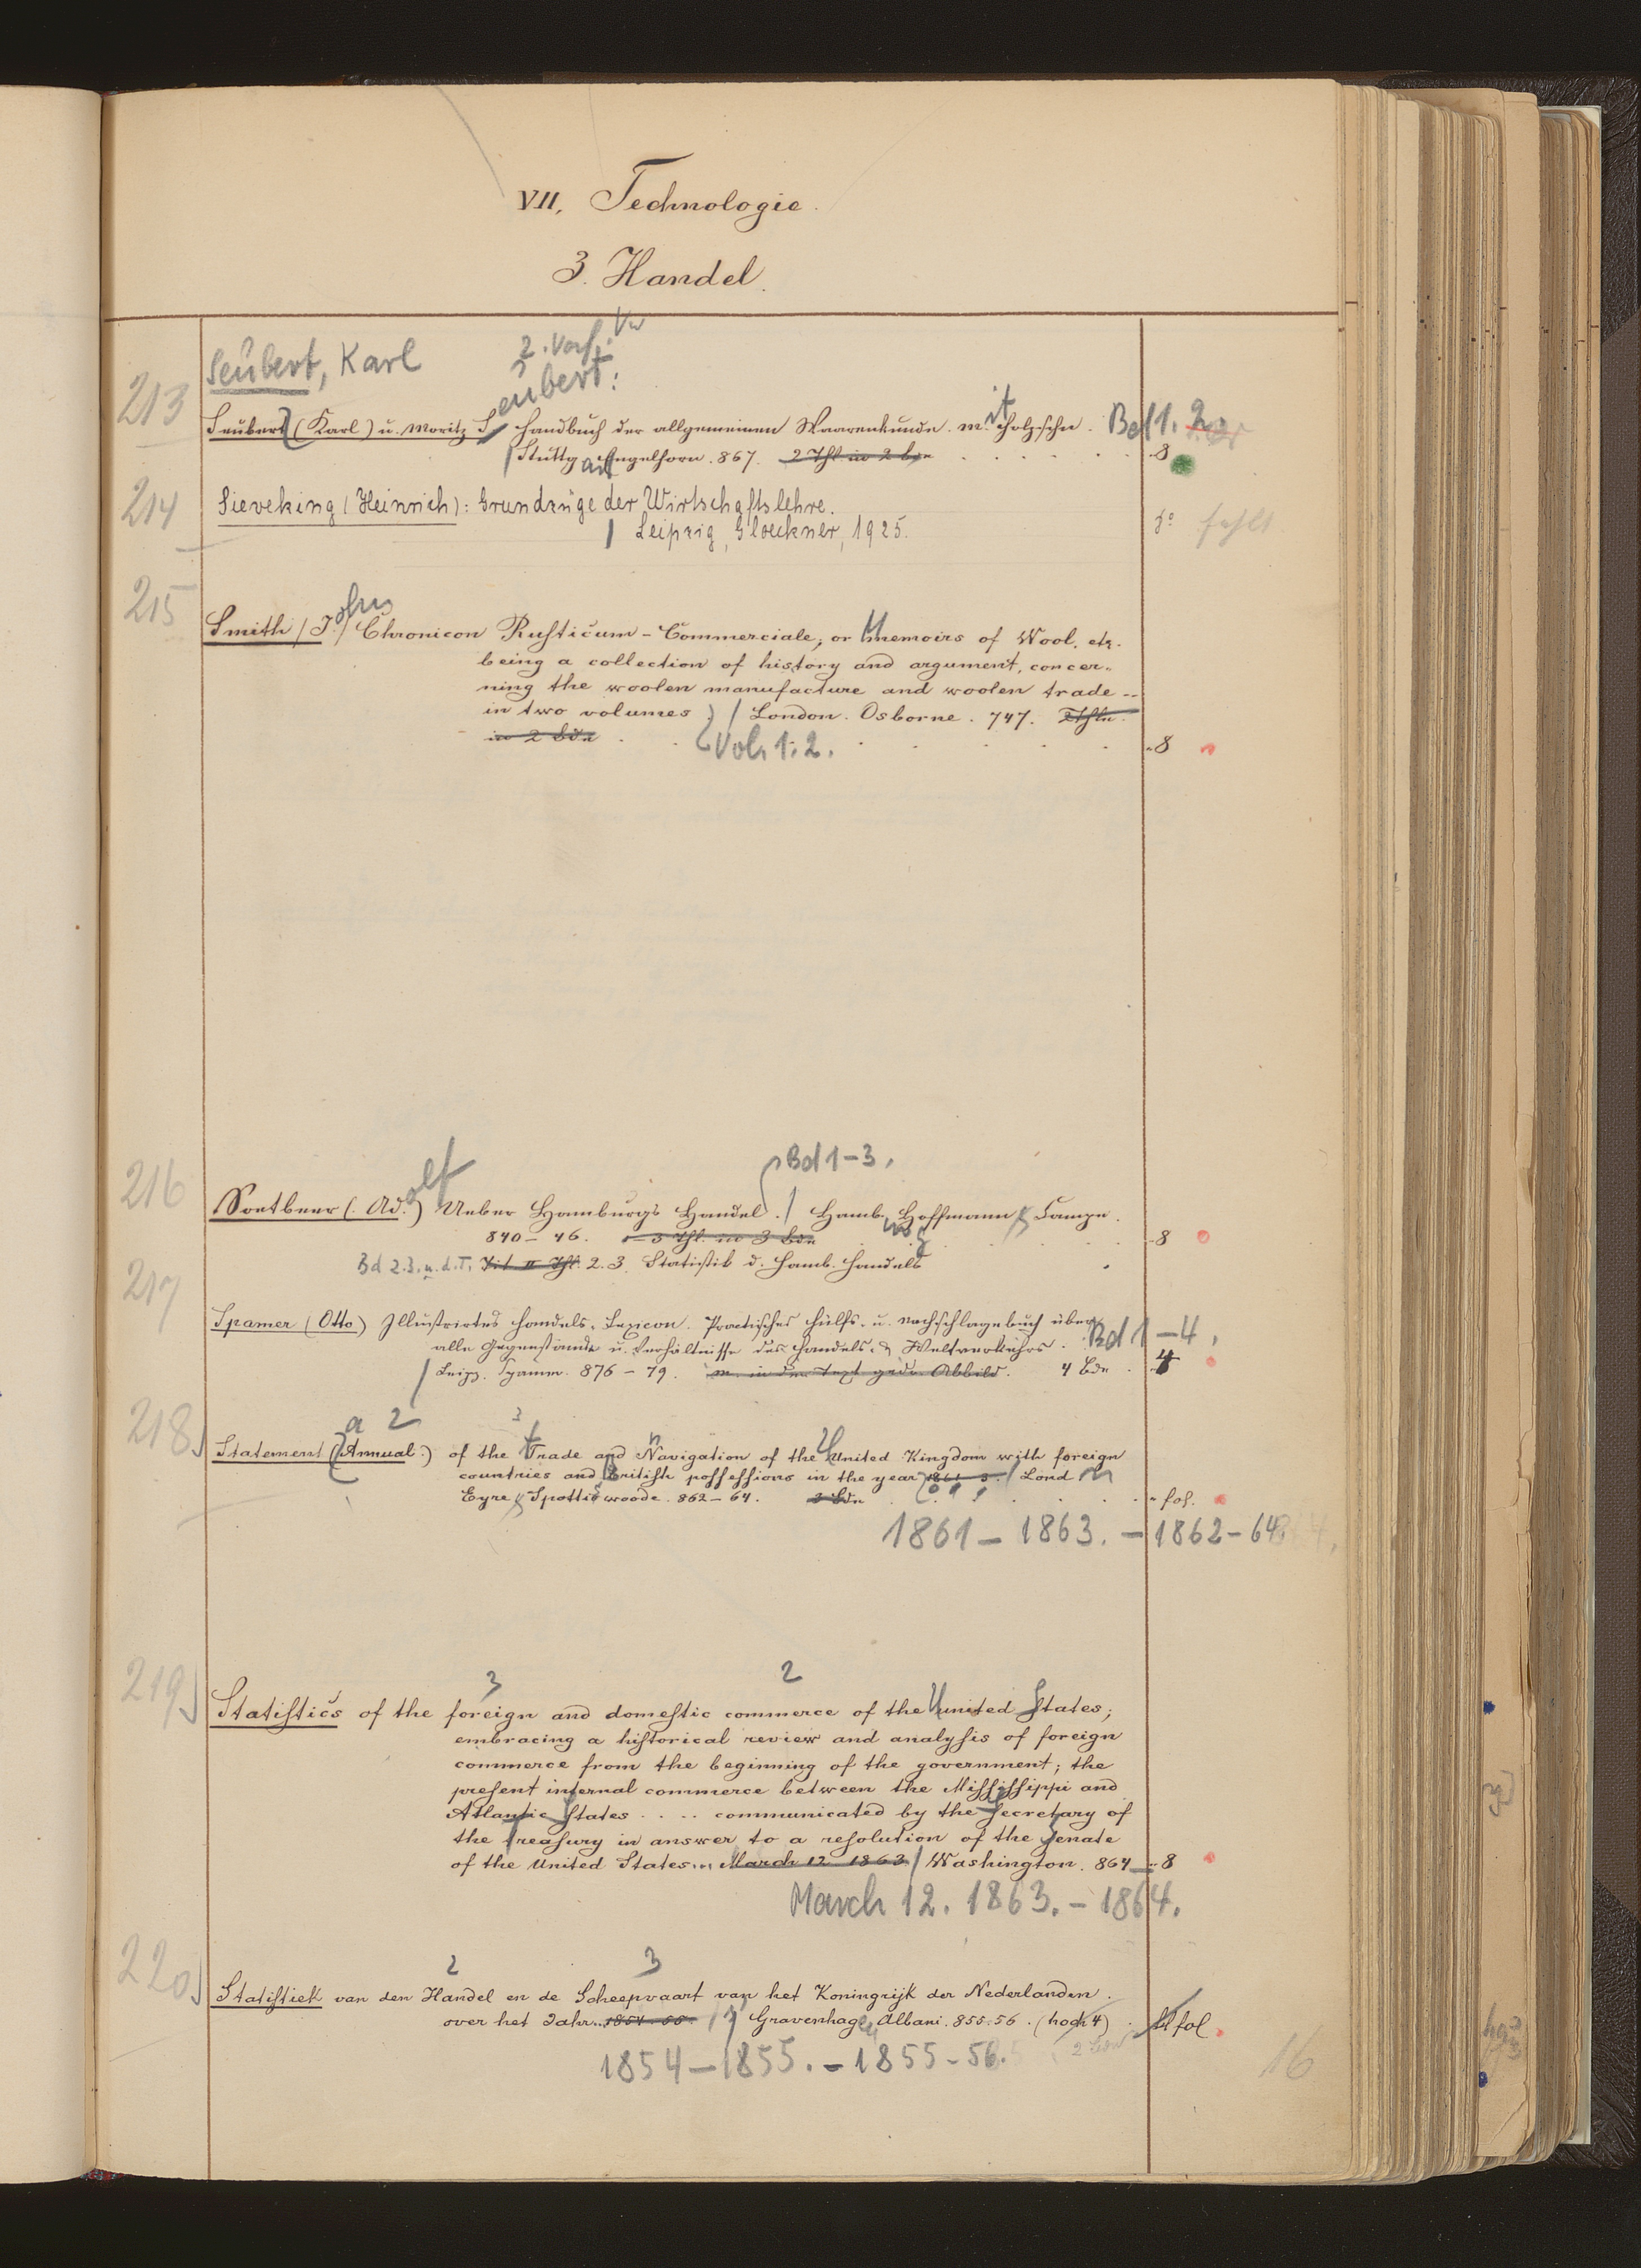 VII. Technologie.
3. Handel.
2. Verf. Vw
Seubert, Karl
eubert:
213
Seubert (Karl) u. Moritz S. Handbuch der allgemeinen Waarenkunde. m. it Holzschn. Bd 1. 2.
Stuttg art Engelhorn. 867. 2 Thl in 2 bdn 8
214
Sieveking (Heinrich): Grundzüge der Wirtschaftslehre.
Leipzig, Gloeckner, 1925. 8° fehlt
215
ohn
Smith (J.) Chronicon Rusticum-Commerciale; or Memoirs of Wool, etc.
being a collection of history and argument, concer-
ning the woolen manufacture and woolen trade --
in two volumes / London. Osborne. 747. 2 Thle
in 2 Bdn Vol. 1. 2. 8
216
olf Bd 1-3.
Soetbeer (Ad.) Ueber Hamburgs Handel. / Hamb. Hoffmann & Campe.
840-46. 3 Thl. in 3 Bdn 8
Bd 2.3. u. d. T. Tit II Thl. 2. 3. Statistik d. Hamb. Handels
217
Spamer (Otto) Illustrirtes Handels-Lexicon. Practisches Hülfs- u. Nachschlagebuch über
alle Gegenstände u. Verhältnisse des Handels- & Weltverkehrs. Bd 1-4.
Leipz. Spamer. 876-79. m. in den Text gedr. Abbild. 4 Bde 4
218
a 2 3
Statement (Annual) of the Trade and Navigation of the United Kingdom with foreign
countries and British possessions in the year 1861-3. / Lond
Eyre & Spottiswoode. 862-64. 3 Bdn fol.
1861-1863. - 1862-64
219
3 2
Statistics of the foreign and domestic commerce of the United States;
embracing a historical review and analysis of foreign
commerce from the beginning of the government; the
present internal commerce between the Mississippi and
Atlantic States .... communicated by the Secretary of
the treasury in answer to a resolution of the Senate
of the United States... March 12 1863 / Washington. 864 8
March 12. 1863. - 1864.
220
2 3
Statistiek van den Handel en de Scheepvaart van het Koningrijk der Nederlanden.
over het Jahr. 1854-55. Gravenhage Albani. 855-56. (hoch 4) fol.
1854-1855. - 1855-56.
16